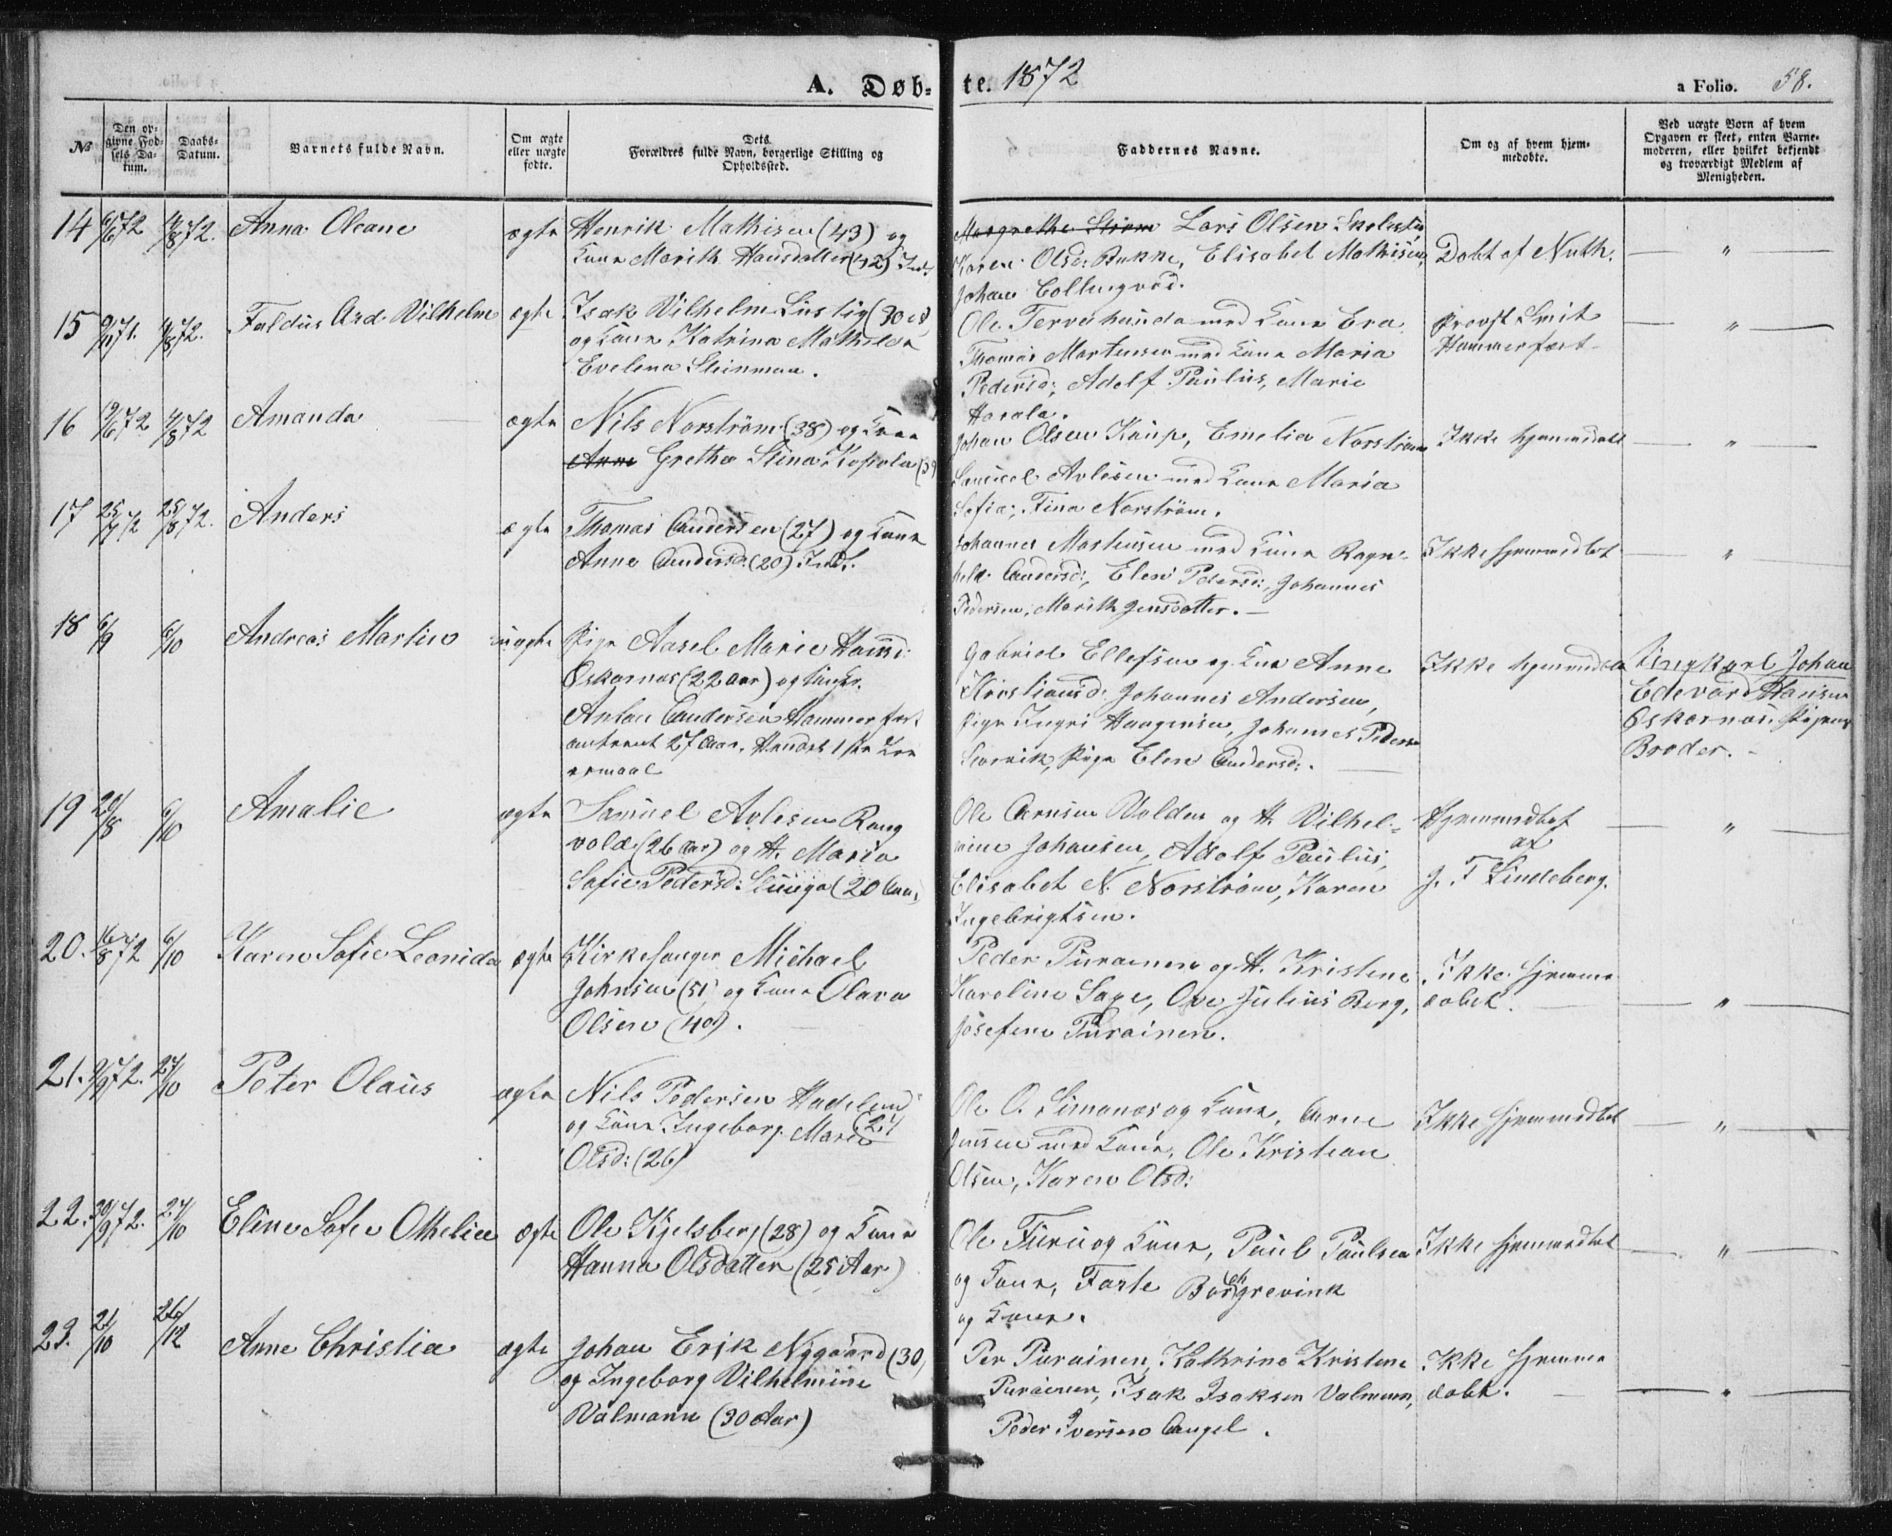 A. Døbte. 1872
a Folio. 58.
№
Den opgivne Fødsels Datum.
Daabs-Datum.
Barnets fulde Navn.
Om ægte eller uægte fødte.
Dets Forældres fulde Navn, borgerlige Stilling og Opholdssted.
Faddernes Navne.
Om og af hvem hjemmedøbte.
Ved uægte Børn af hvem Opgaven er skeet, enten Barnemoderen, eller hvilket bekjendt og troværdigt Medlem af Menigheden.
14 6/6 72 Anna Oleane ægte
Henrik Mathisen (43) og
Kone Marith Hansdatter (42)
Lars Olsen
Karen Olsd: Bakke, Elisabet Mathisen,
Johan Collingvod.
Døbt af Nuth. "
15 Ard Vilhelm ægte
Isak Vilhelm Lustig (30
og Kone Katrina Mathilda
Evelena Steinman.
Ole Tervahauda med Kone Eva
Thomas Mortensen med Kone Maria
Pedersd:, Adolf Paulus, Marie
Havala.
Provst Smit
Hammerfest "
16 19/6 72 4/8 72 Amanda ægte
Nils Norstrøm (38) og Kone
Anne Gretha Stina
Johan Olsen Kaup, Emelia Norstrøm
Samuel Avlesen med Kone Maria
Sofia, Fina Norstrøm.
Ikke hjemmedøbt "
17 25/7 72 25/8 72. Anders ægte
Thomas Andersen (27) og Kone
Anne Andersd: (20) Ind.
Johannes Mortensen med Kone Ragn-
hild Andersd:, Elen Petersd:, Johannes
Pedersen, Marith Jensdatter.
Ikke hjemmedøbt "
18 6/9 6/10 Andreas Martin uægte
Pige Aasel Marie Hansd:
Oskarnas (22 Aar) og Ungk.
Anton Andersen Hammerfest
omtrent 27 Aar.
Gabriel Ellefsen og Kone Anne
Kristiansd: Johannes Andersen,
Pige Ingri Haagensen, Johannes Peders
Pige Elen Andersd:.
Ikke hjemmedøbt
Ungkarl Johan
Edevard Hansen
Oskarnas, Pigens
Broder.
19 6/10 Amalie ægte
Samuel Avlesen Rang
vold (26 Aar) og H. Maria
Sofie Pedersd: (20 Aar)
Ole Arnsen Volden og H. Vilhel-
mine Johansen, Adolf Paulus,
Elisabet N. Norstrøm, Karen
Ingebrigtsen.
Hjemmedøbt
af
J. F. Lindeberg. "
20. 16/8 72 6/10 Karen Sofie Leonida ægte
Kirkesanger Michael
Johnsen (51) og Kone Olava
Olsen (40).
Peder Purainen og H. Kristine
Karoline Sage, Ove Julius Berg,
Josefine Purainen.
Ikke hjemme
døbt. "
21. 2/9 72. 27/10 Peter Olaus ægte
Nils Pedersen
og Kone Ingeborg Marie 24
Olsd: (26)
Ole O. Simanes og Kone, Arne
Jensen med Kone, Ole Kristian
Olsen, Karen Olsd:
Ikke hjemmedøbt "
22. 30/9 72. 27/10 Eline Sofie Othelie ægte
Ole Kjelsberg (28) og Kone
Hanna Olsdatter (25 Aar)
Ole Furu og Kone, Paul Paulsen
og Kone, Borchgrevink
og Kone.
Ikke hjemmedøbt "
23. 21/10 26/12 Anne Christia ægte
Johan Erik Nygaard (30)
og Ingeborg Vilhelmine
Valmann (30 Aar)
Per Purainen, Kathrine Kristene
Purainen, Isak Isaksen Valmann,
Peder Iversen Angel.
Ikke hjemme
døbt. "